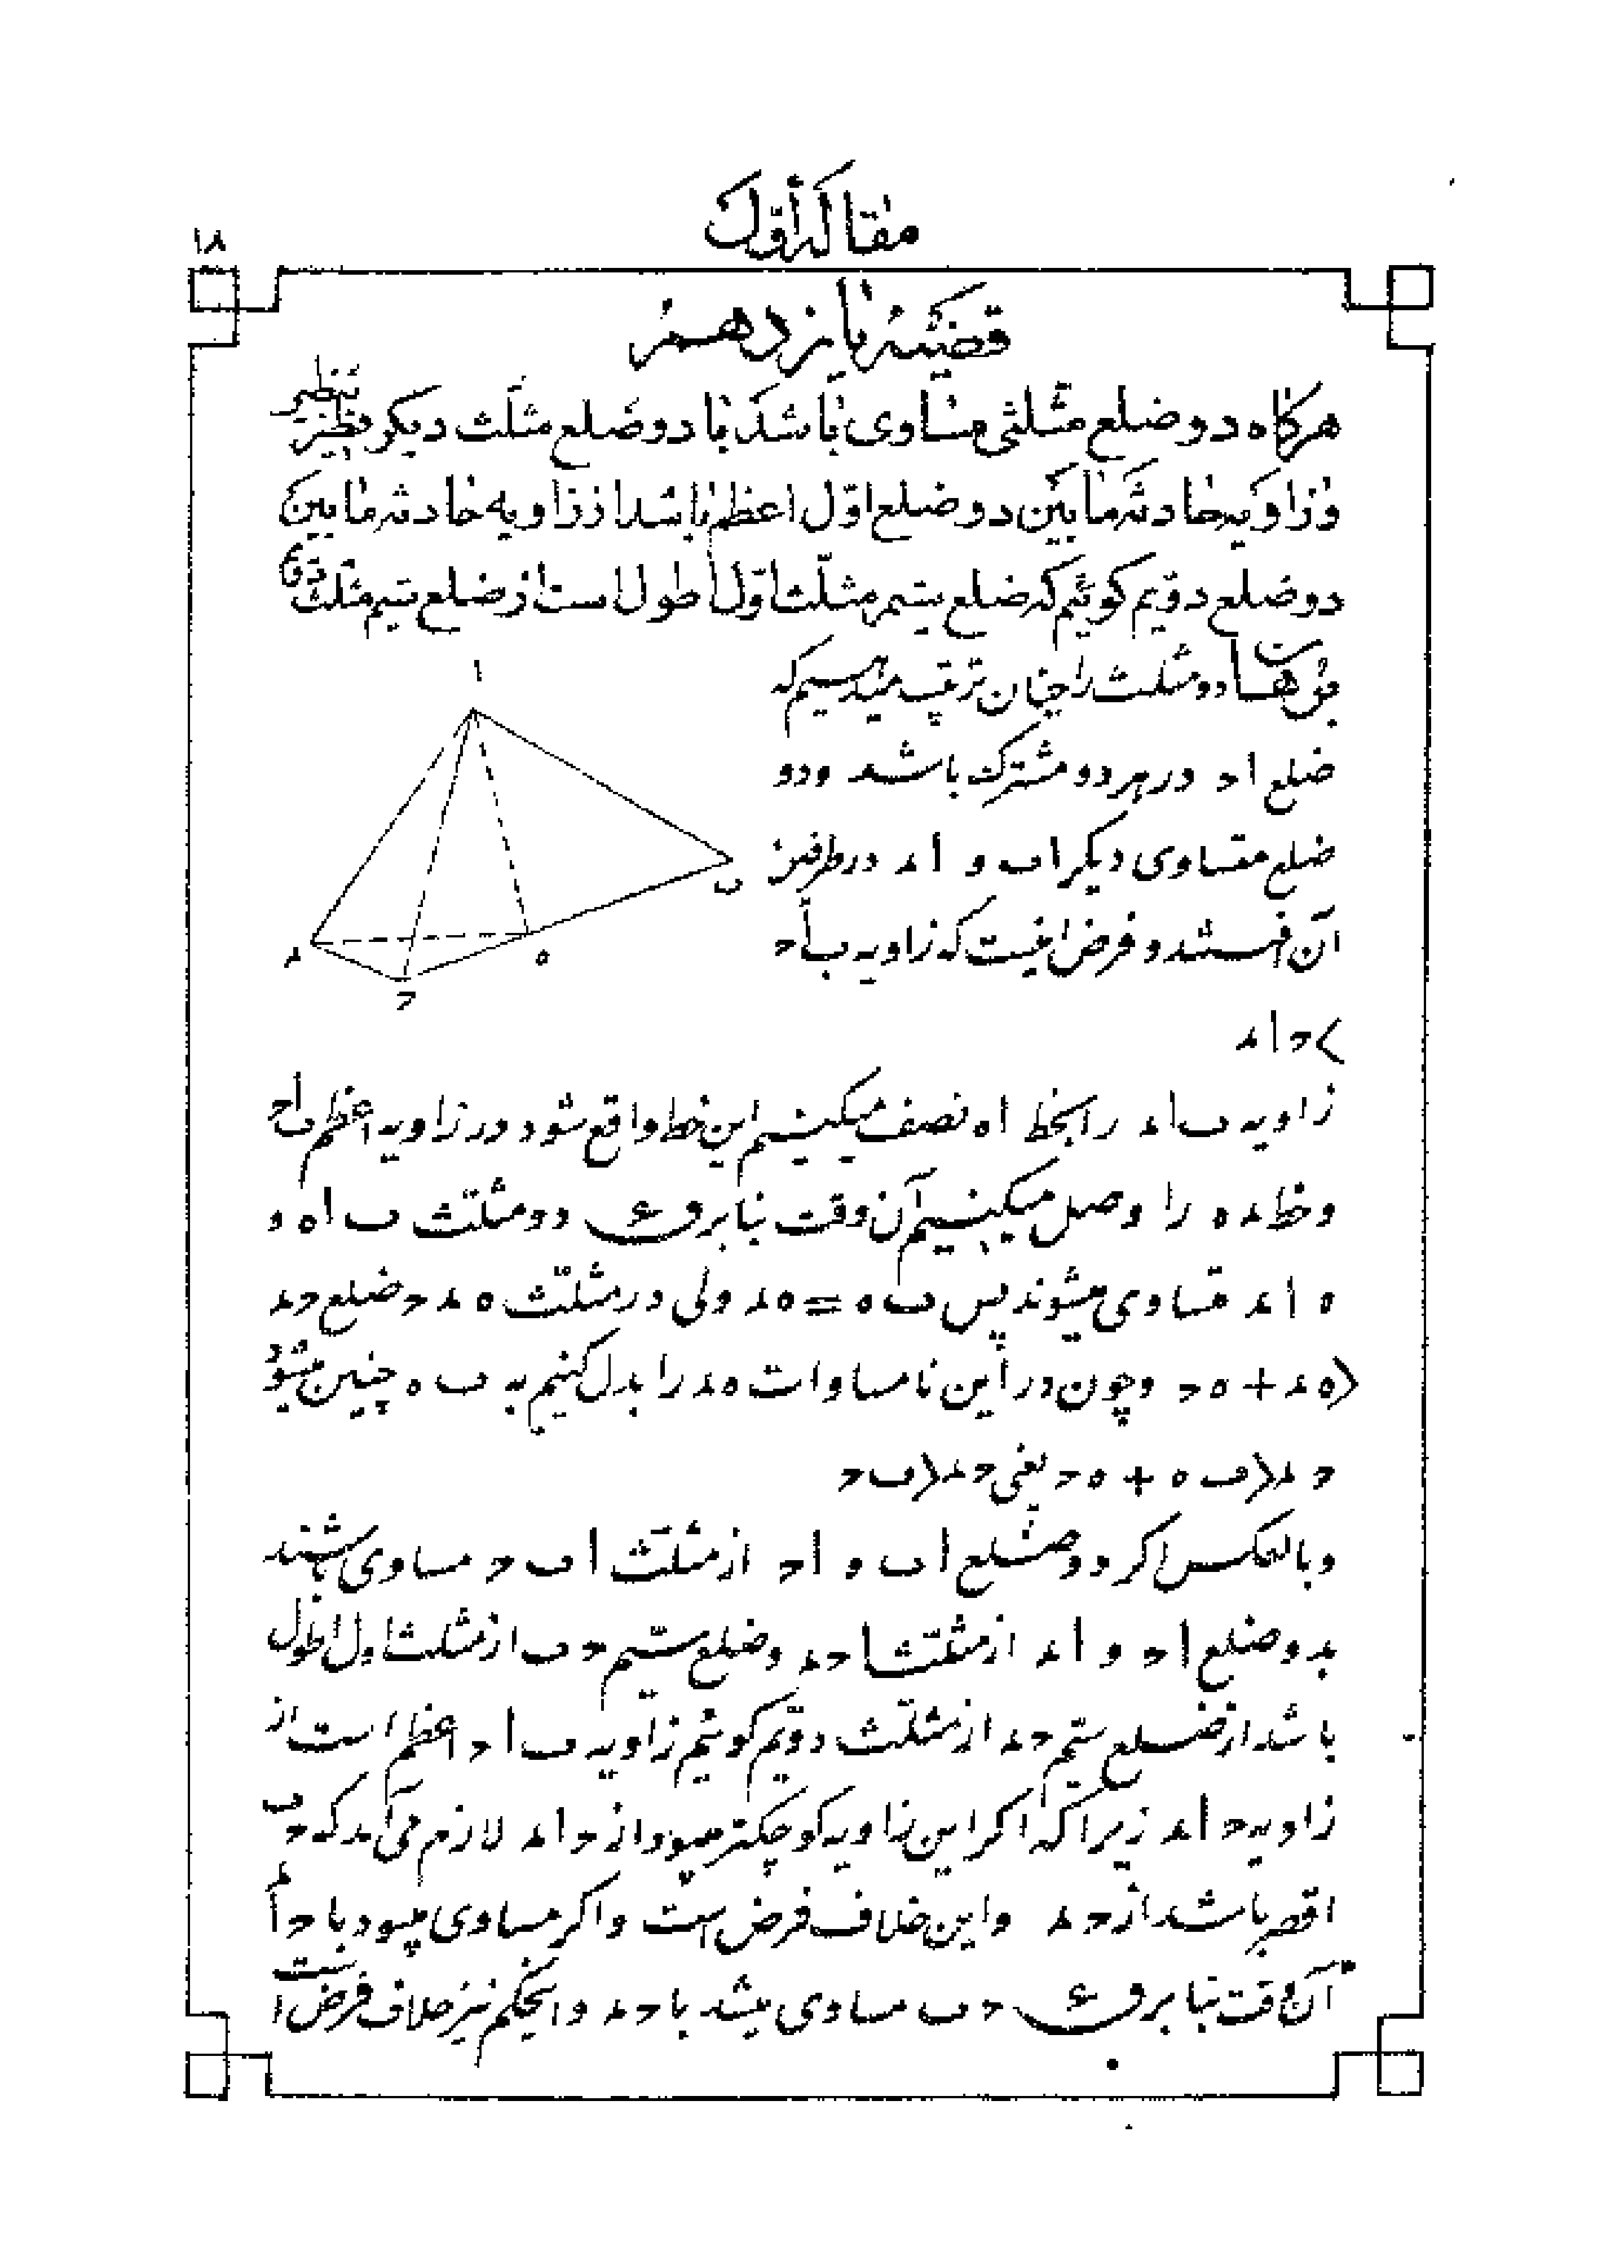 مقالهٔ اوّل
۱۸
قضیّهٔ یازدهم
هرگاه دو ضلع مثلّثی مساوی باشد با دو ضلع مثلّث دیکر نظیر بنظیر
و زاویه حادثه مابین دو ضلع اوّل اعظم باشد از زاویه حادثه مابین
دو ضلع دویّم کوئیم که ضلع سیّم مثلّث اوّل اطول است از ضلع سیّم مثلّث دویّم
برهان دو مثلث را چنان ترتیب میدهیم که
ضلع ا ح در هر دو مشترک باشد و دو
ضلع متساوی دیکر ا ب و ا د در طرفین
آن هستند و فرض اینست که زاویه ب ا ح
> ح ا د
ا
ب
ه
ح
د
زاویه ب ا د را بخط ا ه نصف میکنیم این خط واقع شود در زاویه اعظم ب ا ح
و خط د ه را وصل میکنیم آن وقت بنا بر ق ع دو مثلّث ب ا ه و
ه ا د متساوی میشوند پس ب ه = ه د ولی در مثلّث ه د ح ضلع ح د
< ه د + ه ح و چون در این نامساوات ه د را بدل کنیم به ب ه چنین میشود
ح د < ب ه + ه ح یعنی ح د < ب ح
و بالعکس اکر دو ضلع ا ب و ا ح از مثلّث ا ب ح مساوی باشند
بدو ضلع ا ح و ا د از مثلّث ا ح د و ضلع سیّم ح ب از مثلث اول اطول
باشد از ضلع سیّم ح د از مثلّث دویّم کوئیم زاویه ب ا ح اعظم است از
زاویه ح ا د زیرا که اکر این زاویه کوچکتر میبود از ح ا د لازم می‌آمد که ح ب
اقصر باشد از ح د و این خلاف فرض است و اکر مساوی میبود با ح ا د
آن وقت بنا بر ق ع ح ب مساوی میشد با ح د و اینحکم نیز خلاف فرض است